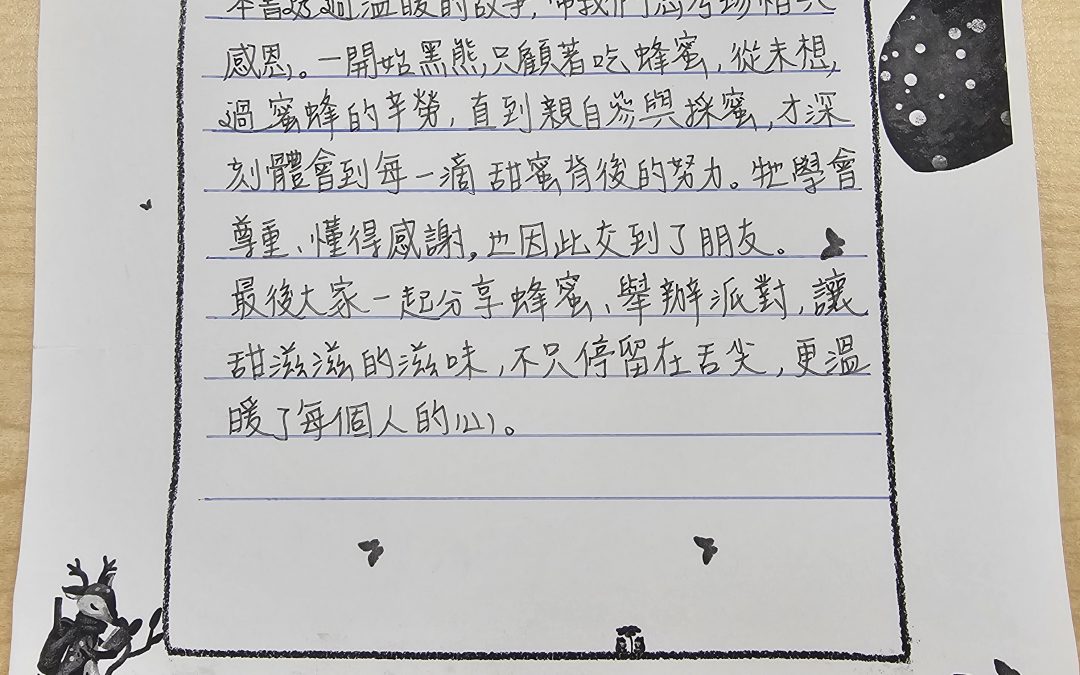 本書透過溫暖的故事,帶我們思考珍惜與
感恩。一開始黑熊只顧著吃蜂蜜,從未想
過蜜蜂的辛勞,直到親自參與採蜜,才深
刻體會到每一滴甜蜜背後的努力。牠學會
尊重、懂得感謝,也因此交到了朋友。
最後大家一起分享蜂蜜、舉辦派對,讓
甜滋滋的滋味,不只停留在舌尖,更溫
暖了每個人的心。